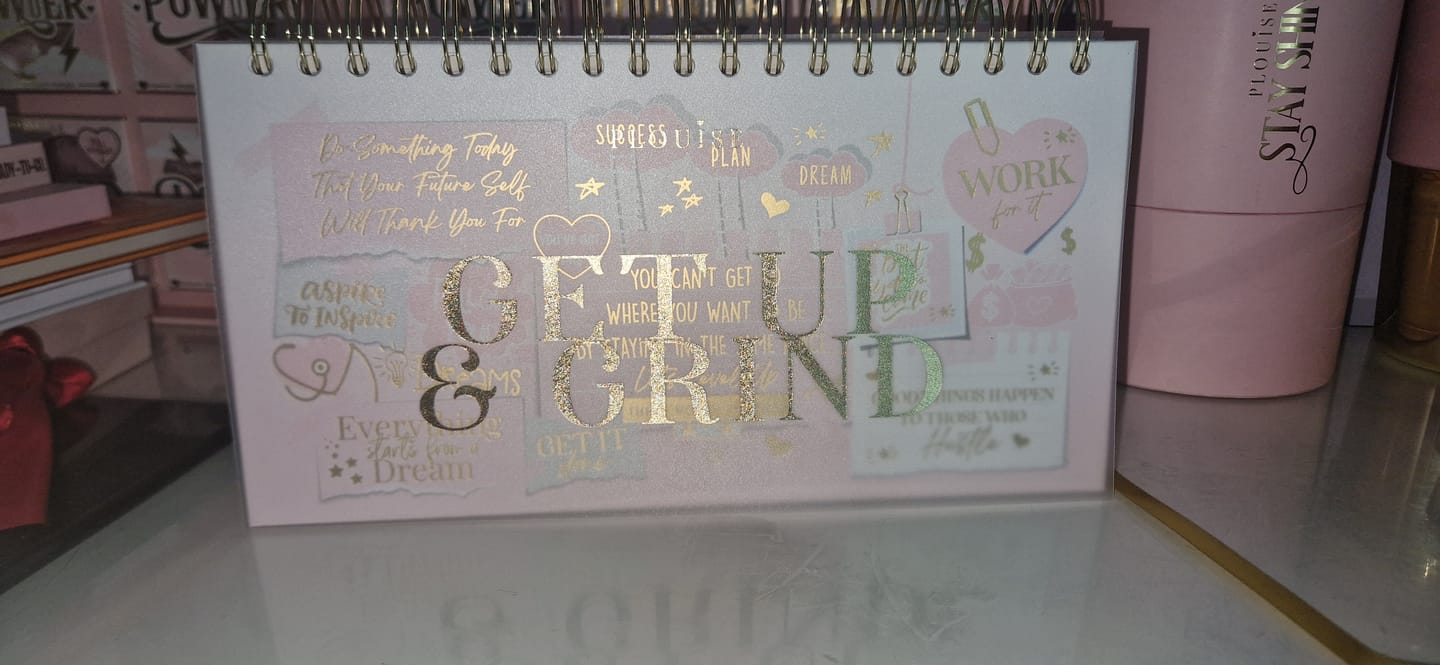 POWDER
PLOUISE
STAY SHIN
Do Something Today
That Your Future Self
Will Thank You For
SUCCESS
PLOUISE
PLAN
DREAM
WORK
for it
aspire
To INSpire
YOU CAN'T GET
WHERE YOU WANT
BE
BY STAYING IN THE
GET UP
& GRIND
DREAMS
Everything
starts from a
Dream
GET IT
GOOD THINGS HAPPEN
TO THOSE WHO
Hustle